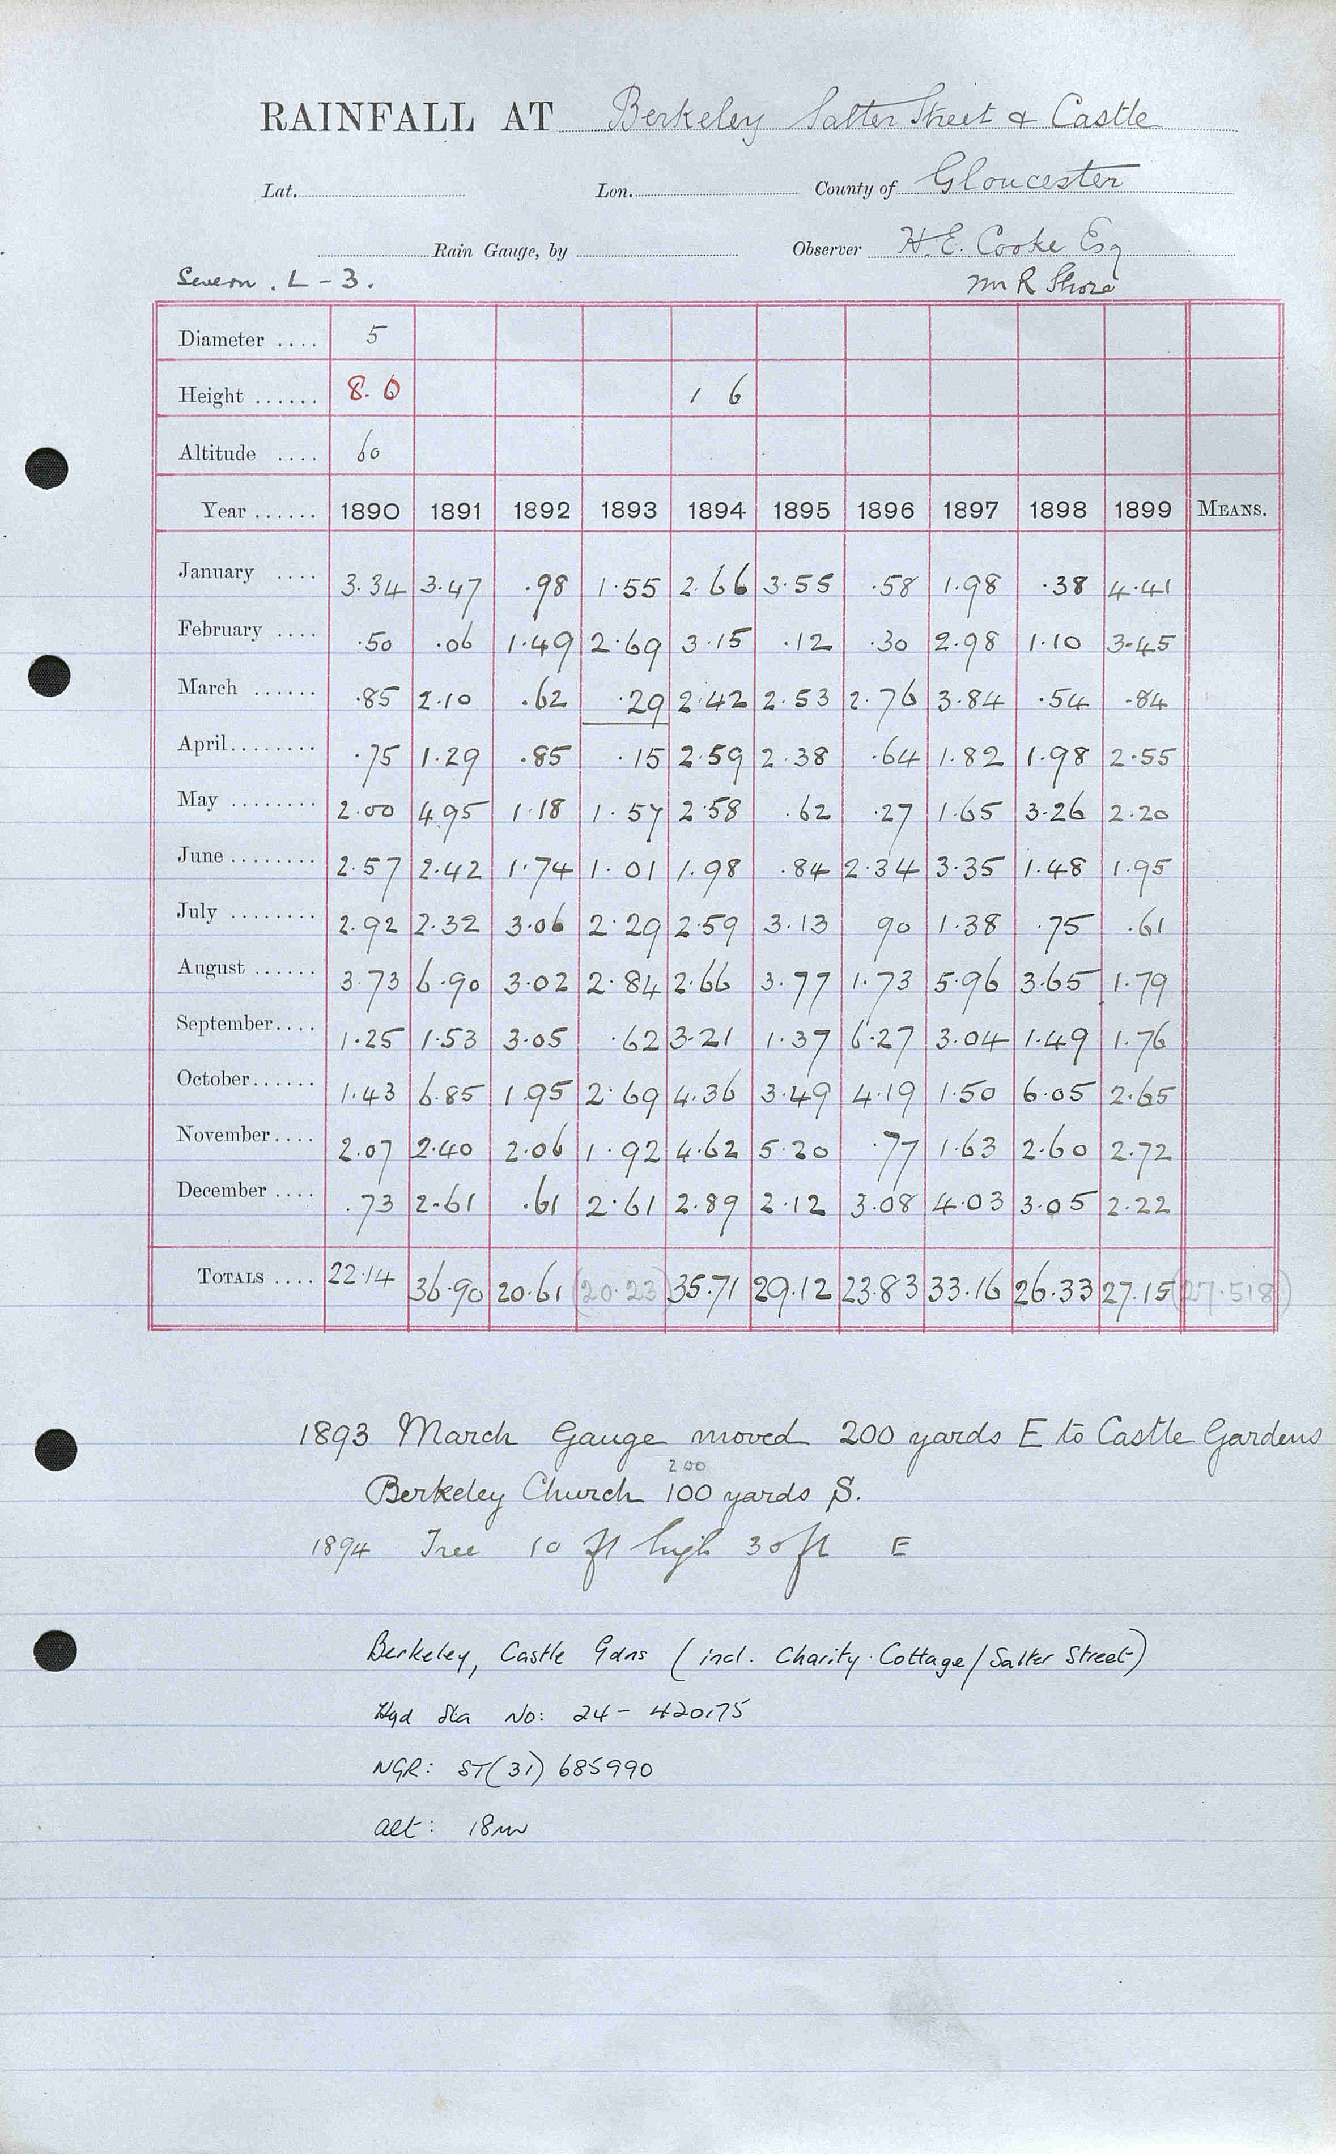 RAINFALL AT Berkeley Salter Street & Castle
Lat. Lon. County of Gloucester
Rain Gauge, by Observer H.E. Cooke Esq
Severn. L - 3. Mr R Shore
Diameter .... 5
Height ...... 8. 6 1 6
Altitude .... 60
Year ...... 1890 1891 1892 1893 1894 1895 1896 1897 1898 1899 MEANS.
January .... 3.34 3.47 .98 1.55 2.66 3.55 .58 1.98 .38 4.41
February .... .50 .06 1.49 2.69 3.15 .12 .30 2.98 1.10 3.45
March ...... .85 2.10 .62 .29 2.42 2.53 2.76 3.84 .54 .84
April........ .75 1.29 .85 .15 2.59 2.38 .64 1.82 1.98 2.55
May ........ 2.00 4.95 1.18 1.57 2.58 .62 .27 1.65 3.26 2.20
June ........ 2.57 2.42 1.74 1.01 1.98 .84 2.34 3.35 1.48 1.95
July ........ 2.92 2.32 3.06 2.29 2.59 3.13 90 1.38 .75 .61
August ...... 3.73 6.90 3.02 2.84 2.66 3.77 1.73 5.96 3.65 1.79
September.... 1.25 1.53 3.05 .62 3.21 1.37 6.27 3.04 1.49 1.76
October...... 1.43 6.85 1.95 2.69 4.36 3.49 4.19 1.50 6.05 2.65
November.... 2.07 2.40 2.06 1.92 4.62 5.20 .77 1.63 2.60 2.72
December .... .73 2.61 .61 2.61 2.89 2.12 3.08 4.03 3.05 2.22
TOTALS .... 22.14 36.90 20.61 (20.23) 35.71 29.12 23.83 33.16 26.33 27.15 (27.518)
1893 March Gauge moved 200 yards E to Castle Gardens
200
Berkeley Church 100 yards S.
1894 Tree 10 ft high 30 ft E
Berkeley, Castle Gdns (incl. Charity Cottage/Salter Street)
Hyd Sta No: 24 - 420175
NGR: ST(31) 685990
alt: 18m